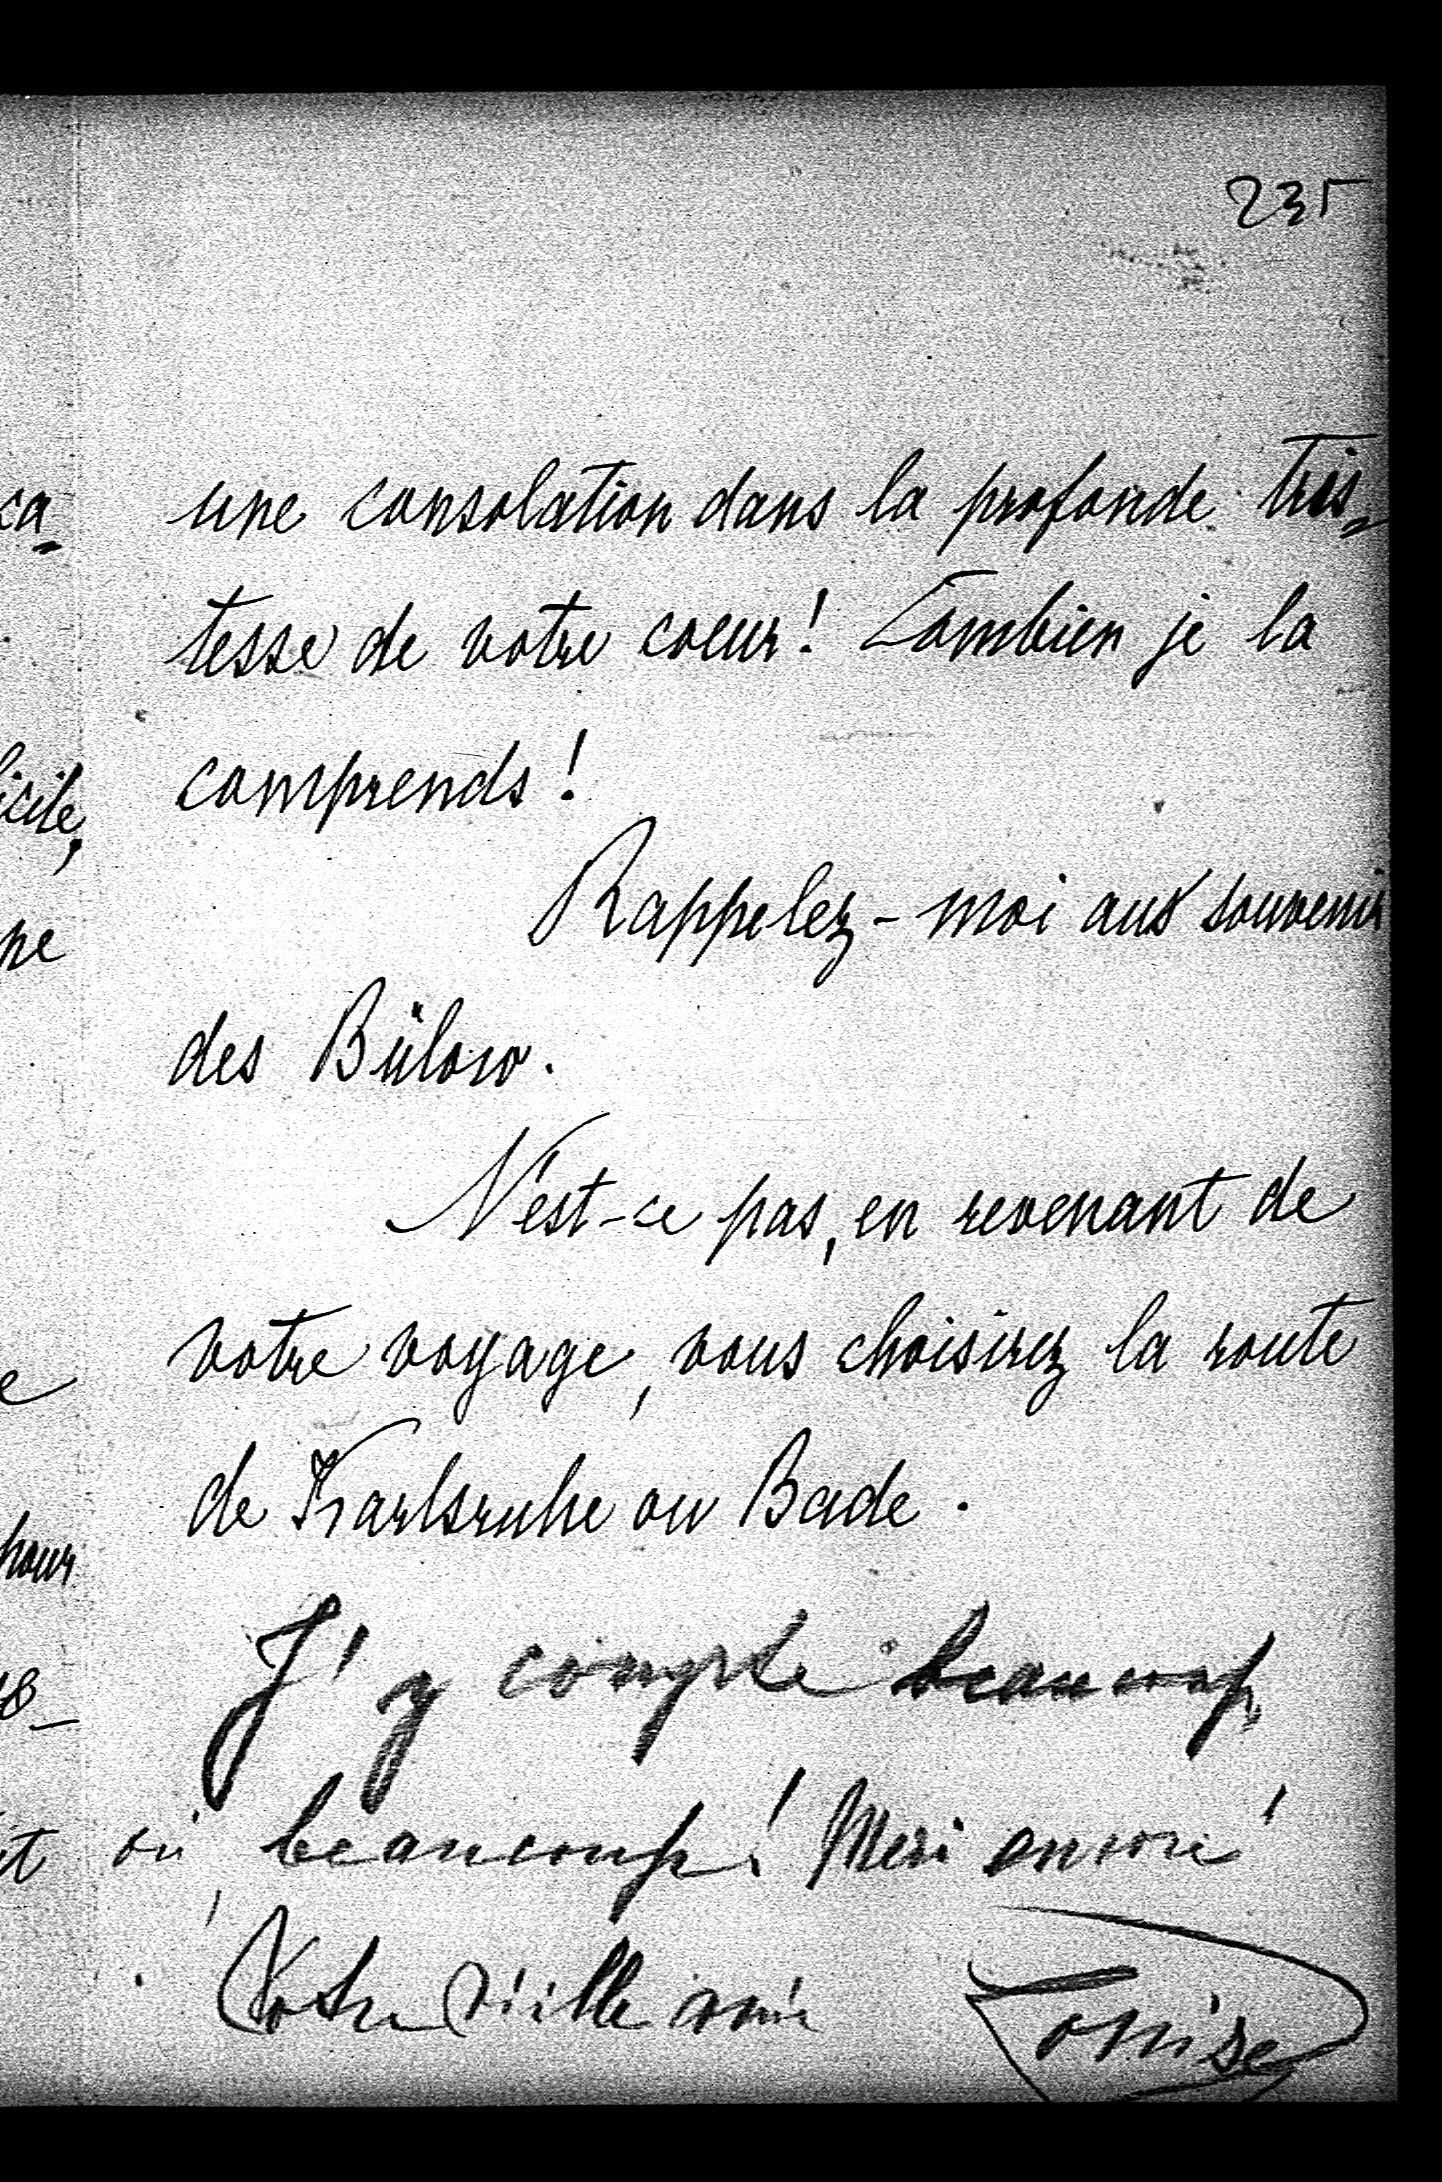 235
une consolation dans la profonde tris-
tesse de votre coeur! Combien je la
comprends!
Rappelez-moi aux souvenir
des Bülow.
N'est-ce pas, en revenant de
votre voyage, vous choisirez la route
de Karlsruhe ou Bade.
J'y compte beaucoup,
beaucoup! Merci encore!
Votre vieille amie Louise